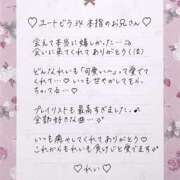 ♡ ユートピア 本指のお兄さん ♡
会えて本当に嬉しかった…♡
会いに来てくれてありがとう(は)
どんなれいも『可愛い〜』って愛でて
くれて…♡ いつも甘やかしてもら
っちゃってる…♡
プレイリストも最高すぎました♡
全部好きな曲…♡
いつも癒やしてくれてありがとう♡
これからもれいを負けじと愛でます♡
♡ れい ♡